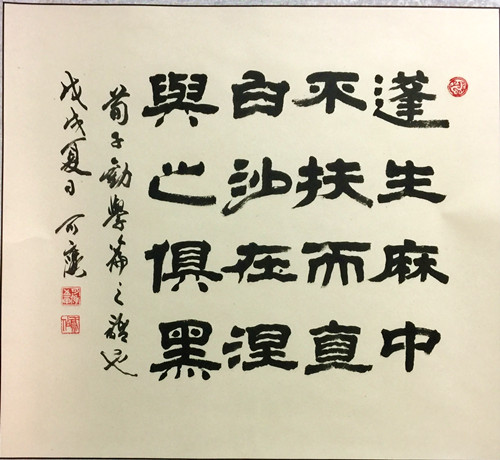 蓬生麻中
不扶而直
白沙在涅
與之俱黑
荀子勸學篇之
戊戌夏日